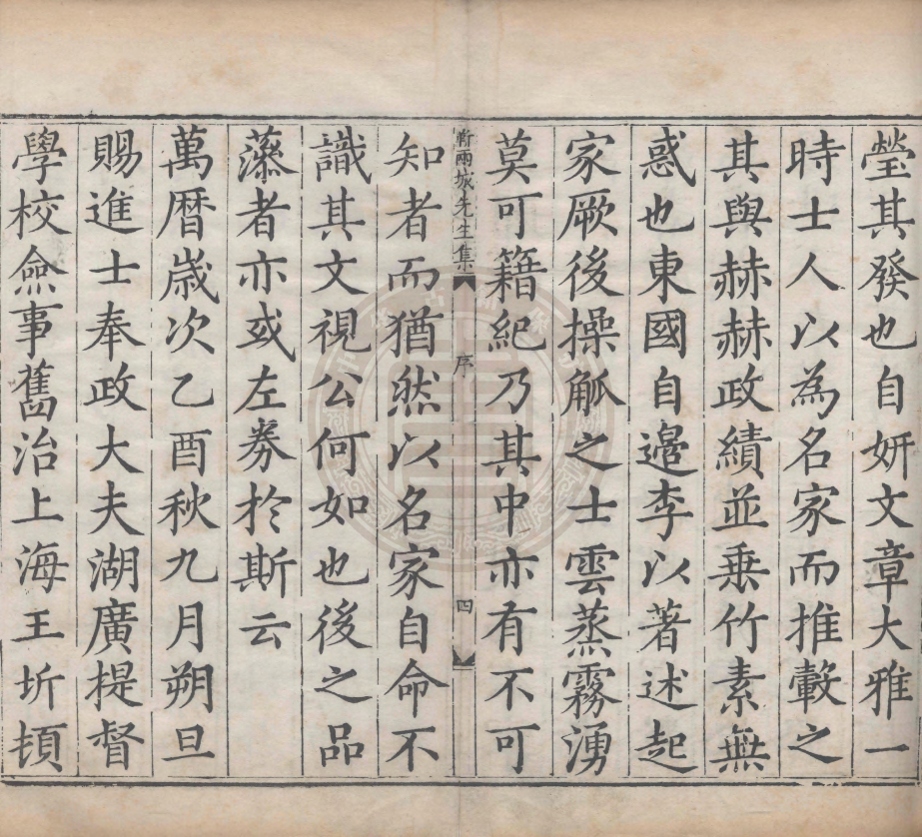 瑩其發也自妍文章大雅一
時士人以為名家而推轂之
其與赫赫政績並乗竹素無
惑也東國自邉李以著述起
家厥後操觚之士雲蒸霧湧
莫可籍紀乃其中亦有不可
靳兩城先生集
序
四
知者而猶然以名家自命不
識其文視公何如也後之品
藻者亦或左券於斯云
萬曆歲次乙酉秋九月朔旦
賜進士奉政大夫湖廣提督
學校僉事舊治上海王圻頓